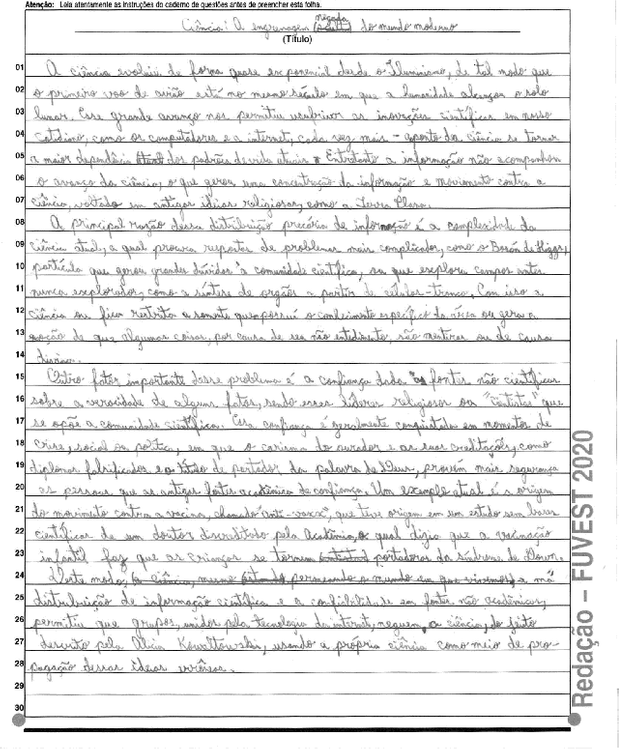 Atenção: Leia atentamente as instruções do caderno de questões antes de preencher esta folha.
Ciência: A engrenagem negada do mundo moderno
(Título)
01 A ciência evoluiu de forma quase exponencial desde o Iluminismo, de tal modo que
02 o primeiro voo de avião está no mesmo século em que a humanidade alcançou o solo
03 lunar. Esse grande avanço nos permitiu usufruir as inovações científicas em nosso
04 cotidiano, como os computadores e a internet, cada vez mais - a ponto da ciência se tornar
05 a maior dependência dos padrões de vida atuais. Entretanto a informação não acompanhou
06 o avanço da ciência, o que gerou uma concentração da informação e movimento contra a
07 ciência, voltado em antigas ideias religiosas, como a Terra Plana.
08 A principal razão dessa distribuição precária de informação é a complexidade da
09 ciência atual, a qual procura respostas de problemas mais complicados, como o Bosón de Higgs,
10 partícula que gerou grande dúvidas a comunidade científica, ou que explora campos antes
11 nunca explorados, como a síntese de orgãos a partir de células-tronco. Com isso a
12 ciência ou fica restrita a somente quem possui o conhecimento específico da área ou gera a
13 noção de que algumas coisas, por causa de seu não entendimento, são mentiras ou de causa
14 divina.
15 Outro fator importante desse problema é a confiança dada as fontes não científicas
16 sobre a veracidade de alguns fatos, sendo esses líderes religiosos ou "cientistas" que
17 se opõe a comunidade científica. Essa confiança é geralmente conquistada em momentos de
18 crise, social ou política, em que o carisma do orador e as suas creditações, como
19 diplomas falsificados e o título de portador da palavra de Deus, provém mais segurança
20 as pessoas que as antigas fontes acadêmica de confiança. Um exemplo atual é a origem
21 do movimento contra a vacina, chamado "anti-vaxx", que teve origem em um estudo sem bases
22 científicas de um doutor discreditado pela Acadêmia, o qual dizia que a vacinação
23 infantil faz que as crianças se tornem portadoras da síndrome de Down.
24 Deste modo, a ciência, mesmo permeando o mundo em que vivemos, a má
25 distribuição de informação científica e a confibilidade em fontes não acadêmicas,
26 permitiu que grupos, unidos pela tecnologia da internet, neguem a ciência, do jeito
27 descrito pela Alicia Kowaltowski, usando a própria ciência como meio de pro-
28 pagação dessas ideias errôneas.
29
30
Redação – FUVEST 2020